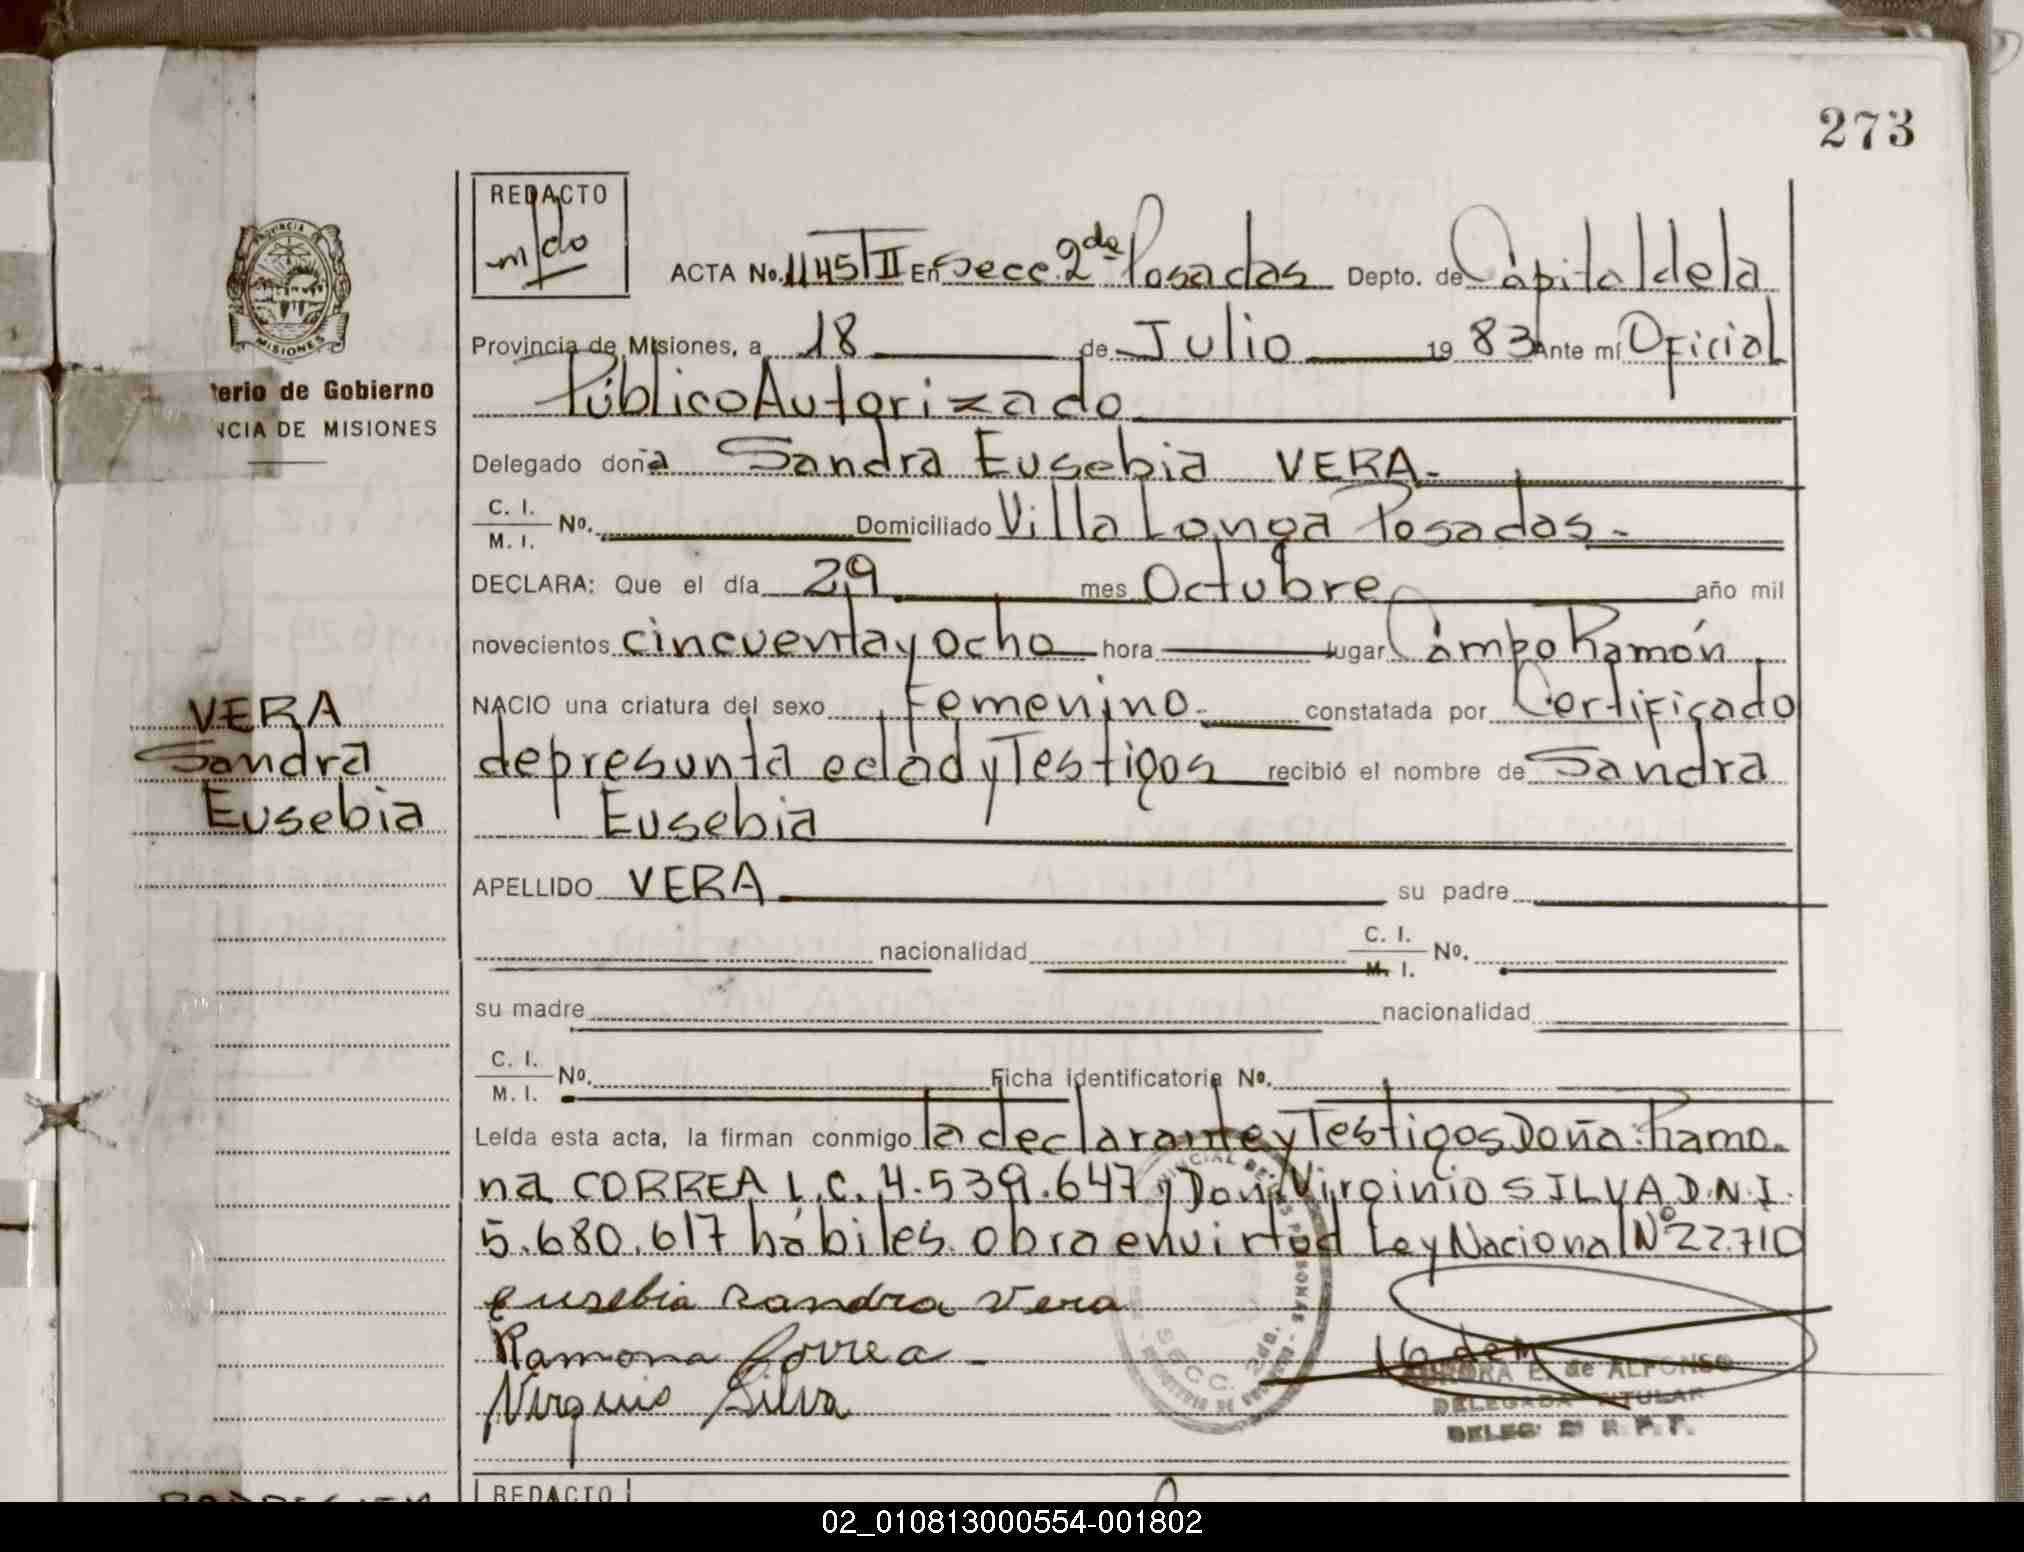 273
REDACTO
m/do
PROVINCIA DE
MISIONES
terio de Gobierno
NCIA DE MISIONES
ACTA No. 1145 TII En Secc. 2da Posadas Depto. de Capital de la
Provincia de Misiones, a 18 de Julio 19 83 Ante mí Oficial
Público Autorizado
Delegado doña Sandra Eusebia VERA.
C. I.
M. I. No. Domiciliado Villa Longa Posadas.
DECLARA: Que el día 29 mes Octubre año mil
novecientos cincuenta y ocho hora lugar Campo Ramón
NACIO una criatura del sexo Femenino. constatada por Certificado
de presunta edad y Testigos recibió el nombre de Sandra
Eusebia
VERA
Sandra
Eusebia
APELLIDO VERA su padre
nacionalidad C. I.
M. I. No.
su madre nacionalidad
C. I.
M. I. No. Ficha identificatoria No.
Leída esta acta, la firman conmigo la declarante y Testigos Doña: Ramo.
na CORREA L.C. 4.539.647 y Don Virginio SILVA D.N.I.
5.680.617 hábiles. obra en virtud Ley Nacional Nº 22.710
eusebia sandra vera
Ramona Correa
Virginio Silva
SECC. 2da.
E. de ALFONSO
DELEGADA TITULAR
DELEG. R. P. P.
REDACTO
02_010813000554-001802